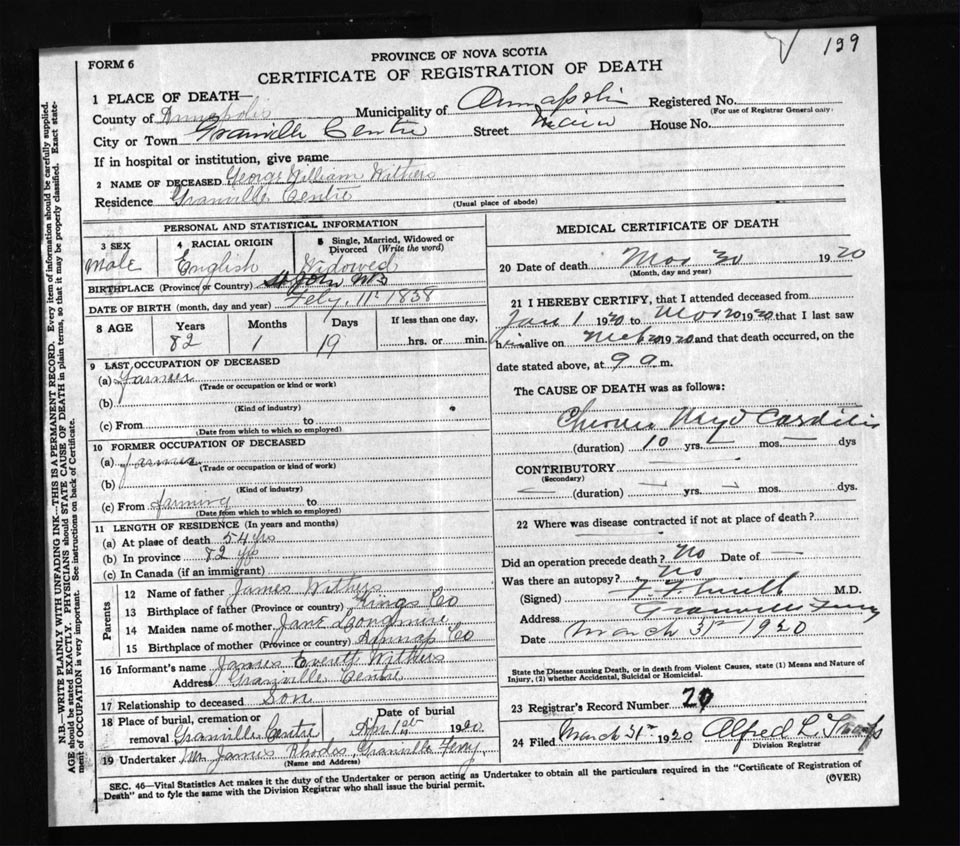 139
PROVINCE OF NOVA SCOTIA
FORM 6
CERTIFICATE OF REGISTRATION OF DEATH
1 PLACE OF DEATH—
County of Annapolis Municipality of Annapolis Registered No.
(For use of Registrar General only)
City or Town Granville Centre Street Main House No.
If in hospital or institution, give name
2 NAME OF DECEASED George William Withers
Residence Granville Centre
(Usual place of abode)
PERSONAL AND STATISTICAL INFORMATION
3 SEX 4 RACIAL ORIGIN 5 Single, Married, Widowed or
Divorced (Write the word)
Male English Widowed
BIRTHPLACE (Province or Country) St John NB
DATE OF BIRTH (month, day and year) Feby. 11th 1838
8 AGE Years Months Days If less than one day,
82 1 19 hrs. or min.
9 LAST OCCUPATION OF DECEASED
(a) Farmer
(Trade or occupation or kind or work)
(b)
(Kind of industry)
(c) From to
(Date from which to which so employed)
10 FORMER OCCUPATION OF DECEASED
(a) Farmer
(Trade or occupation or kind or work)
(b)
(Kind of industry)
(c) From farming to
(Date from which to which so employed)
11 LENGTH OF RESIDENCE (In years and months)
(a) At place of death 54 yrs
(b) In province 82 yrs
(c) In Canada (if an immigrant)
Parents
12 Name of father James Withers
13 Birthplace of father (Province or country) Kings Co
14 Maiden name of mother Jane Longmire
15 Birthplace of mother (Province or country) Annap Co
16 Informant's name James Everett Withers
Address Granville Centre
17 Relationship to deceased Son
18 Place of burial, cremation or Date of burial
removal Granville Centre Apr 1st 1920
19 Undertaker Mr James Rhodes Granville Ferry
(Name and Address)
MEDICAL CERTIFICATE OF DEATH
20 Date of death Mar 30 1920
(Month, day and year)
21 I HEREBY CERTIFY, that I attended deceased from
Jan 1 1920 to Mar 20 1920 that I last saw
him alive on 1920 and that death occurred, on the
date stated above, at 9 a. m.
The CAUSE OF DEATH was as follows:
Chronic Myo Carditis
(duration) 10 yrs. — mos. — dys
CONTRIBUTORY
(Secondary)
(duration) yrs. mos. dys.
22 Where was disease contracted if not at place of death?
Did an operation precede death? No Date of —
Was there an autopsy? No
(Signed) M.D.
Address Granville Ferry
Date March 31st 1920
State the Disease causing Death, or in death from Violent Causes, state (1) Means and Nature of
Injury, (2) whether Accidental, Suicidal or Homicidal.
23 Registrar's Record Number
24 Filed March 31st 1920 Alfred L
Division Registrar
SEC. 46—Vital Statistics Act makes it the duty of the Undertaker or person acting as Undertaker to obtain all the particulars required in the "Certificate of Registration of
Death" and to fyle the same with the Division Registrar who shall issue the burial permit.
(OVER)
N.B.—WRITE PLAINLY WITH UNFADING INK—THIS IS A PERMANENT RECORD. Every item of information should be carefully supplied.
AGE should be stated EXACTLY. PHYSICIANS should STATE CAUSE OF DEATH in plain terms, so that it may be properly classified. Exact state-
ment of OCCUPATION is very important. See instructions on back of Certificate.